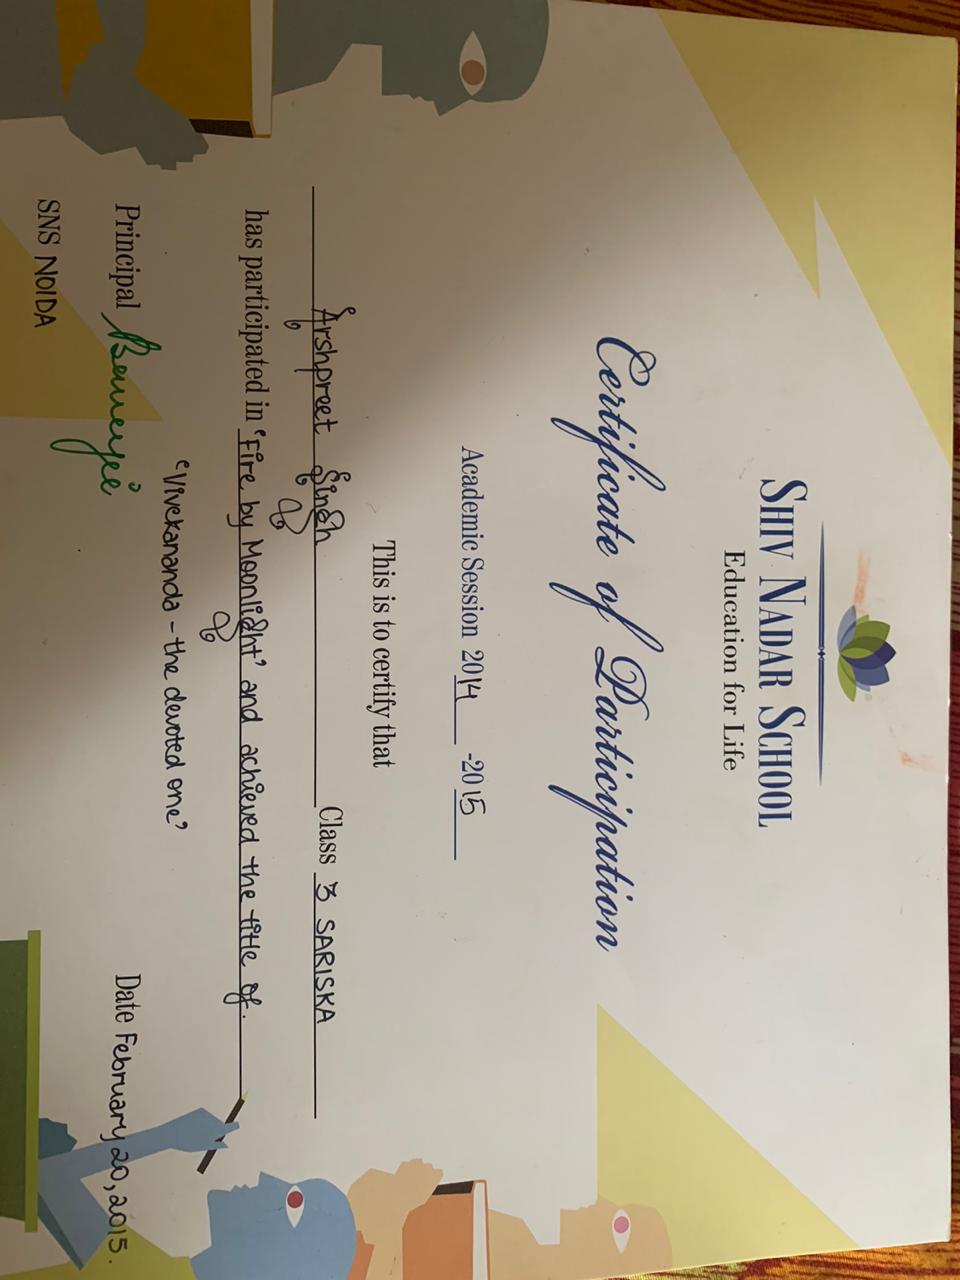 SHIV NADAR SCHOOL
Education for Life
Certificate of Participation
Academic Session 2014 -2015
This is to certify that
Arshpreet Singh Class 3 SARISKA
has participated in 'Fire by Moonlight' and achieved the title of
'Vivekananda - the devoted one'
Principal Banerjee Date February 20, 2015.
SNS NOIDA